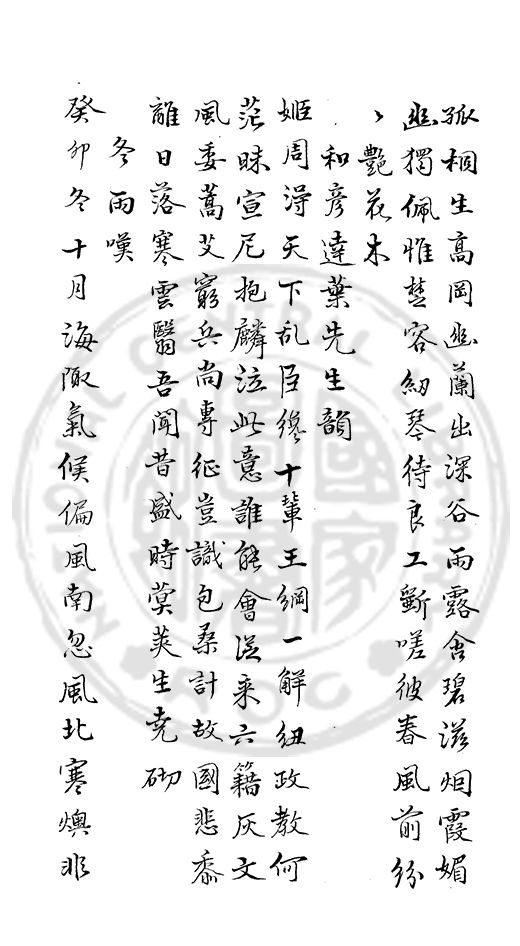 孤桐生高岡幽蘭出深谷雨露含碧滋烟霞媚
幽獨佩惟楚客紉琴待良工斲嗟彼春風前紛
ヽ艷花木
和彦達葉先生韻
姬周得天下乱臣纔十輩王綱一解紐政教何
茫昧宣尼抱麟泣此意誰能會逕来六籍灰文
風委蒿艾窮兵尚專征豈識包桑計故國悲黍
離日落寒雲翳吾聞昔盛時蓂莢生堯砌
冬雨嘆
癸卯冬十月海陬氣候偏風南忽風北寒燠非